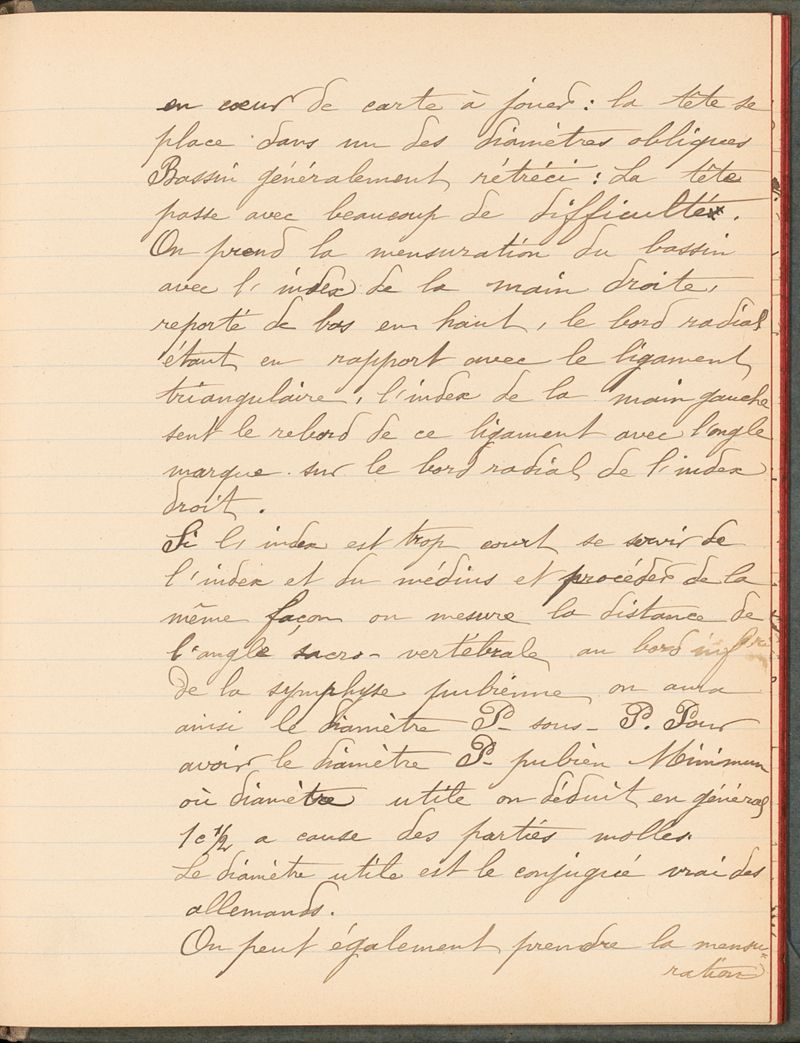 en cœur de carte à jouer : la tête se
place dans un des diamètres obliques
Bassin généralement rétréci : La tête
passe avec beaucoup de difficulté.
On prend la mensuration du bassin
avec l'index de la main droite,
reporté de bas en haut, le bord radial
étant en rapport avec le ligament
triangulaire, l'index de la main gauche
sent le rebord de ce ligament avec l'ongle
marque sur le bord radial de l'index
droit.
Si l'index est trop court se servir de
l'index et du médius et procéder de la
même façon on mesure la distance de
l'angle sacro-vertébrale au bord
De la symphyse pubienne on aura
ainsi le diamètre P-sous-P. Pour
avoir le diamètre P-pubien Minimum
où diamètre utile on déduit en général
1c 1/2 a cause des parties molles
Le diamètre utile est le conjugué vrai des
allemands.
On peut également prendre la mensu-
ration